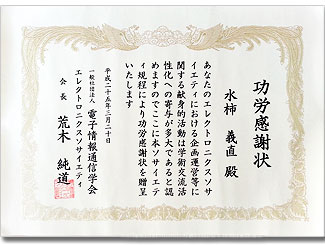 功労感謝状
水柿 義直 殿
あなたのエレクトロニクスソサ
イエティにおける企画運営等に
関する献身的活動は学術交流活
性化への寄与が多大であると認
めますのでここに本ソサイエテ
ィ規程により功労感謝状を贈呈
いたします
平成二十五年三月二十日
一般社団法人 電子情報通信学会
エレクトロニクスソサイエティ
会長 荒木 純道